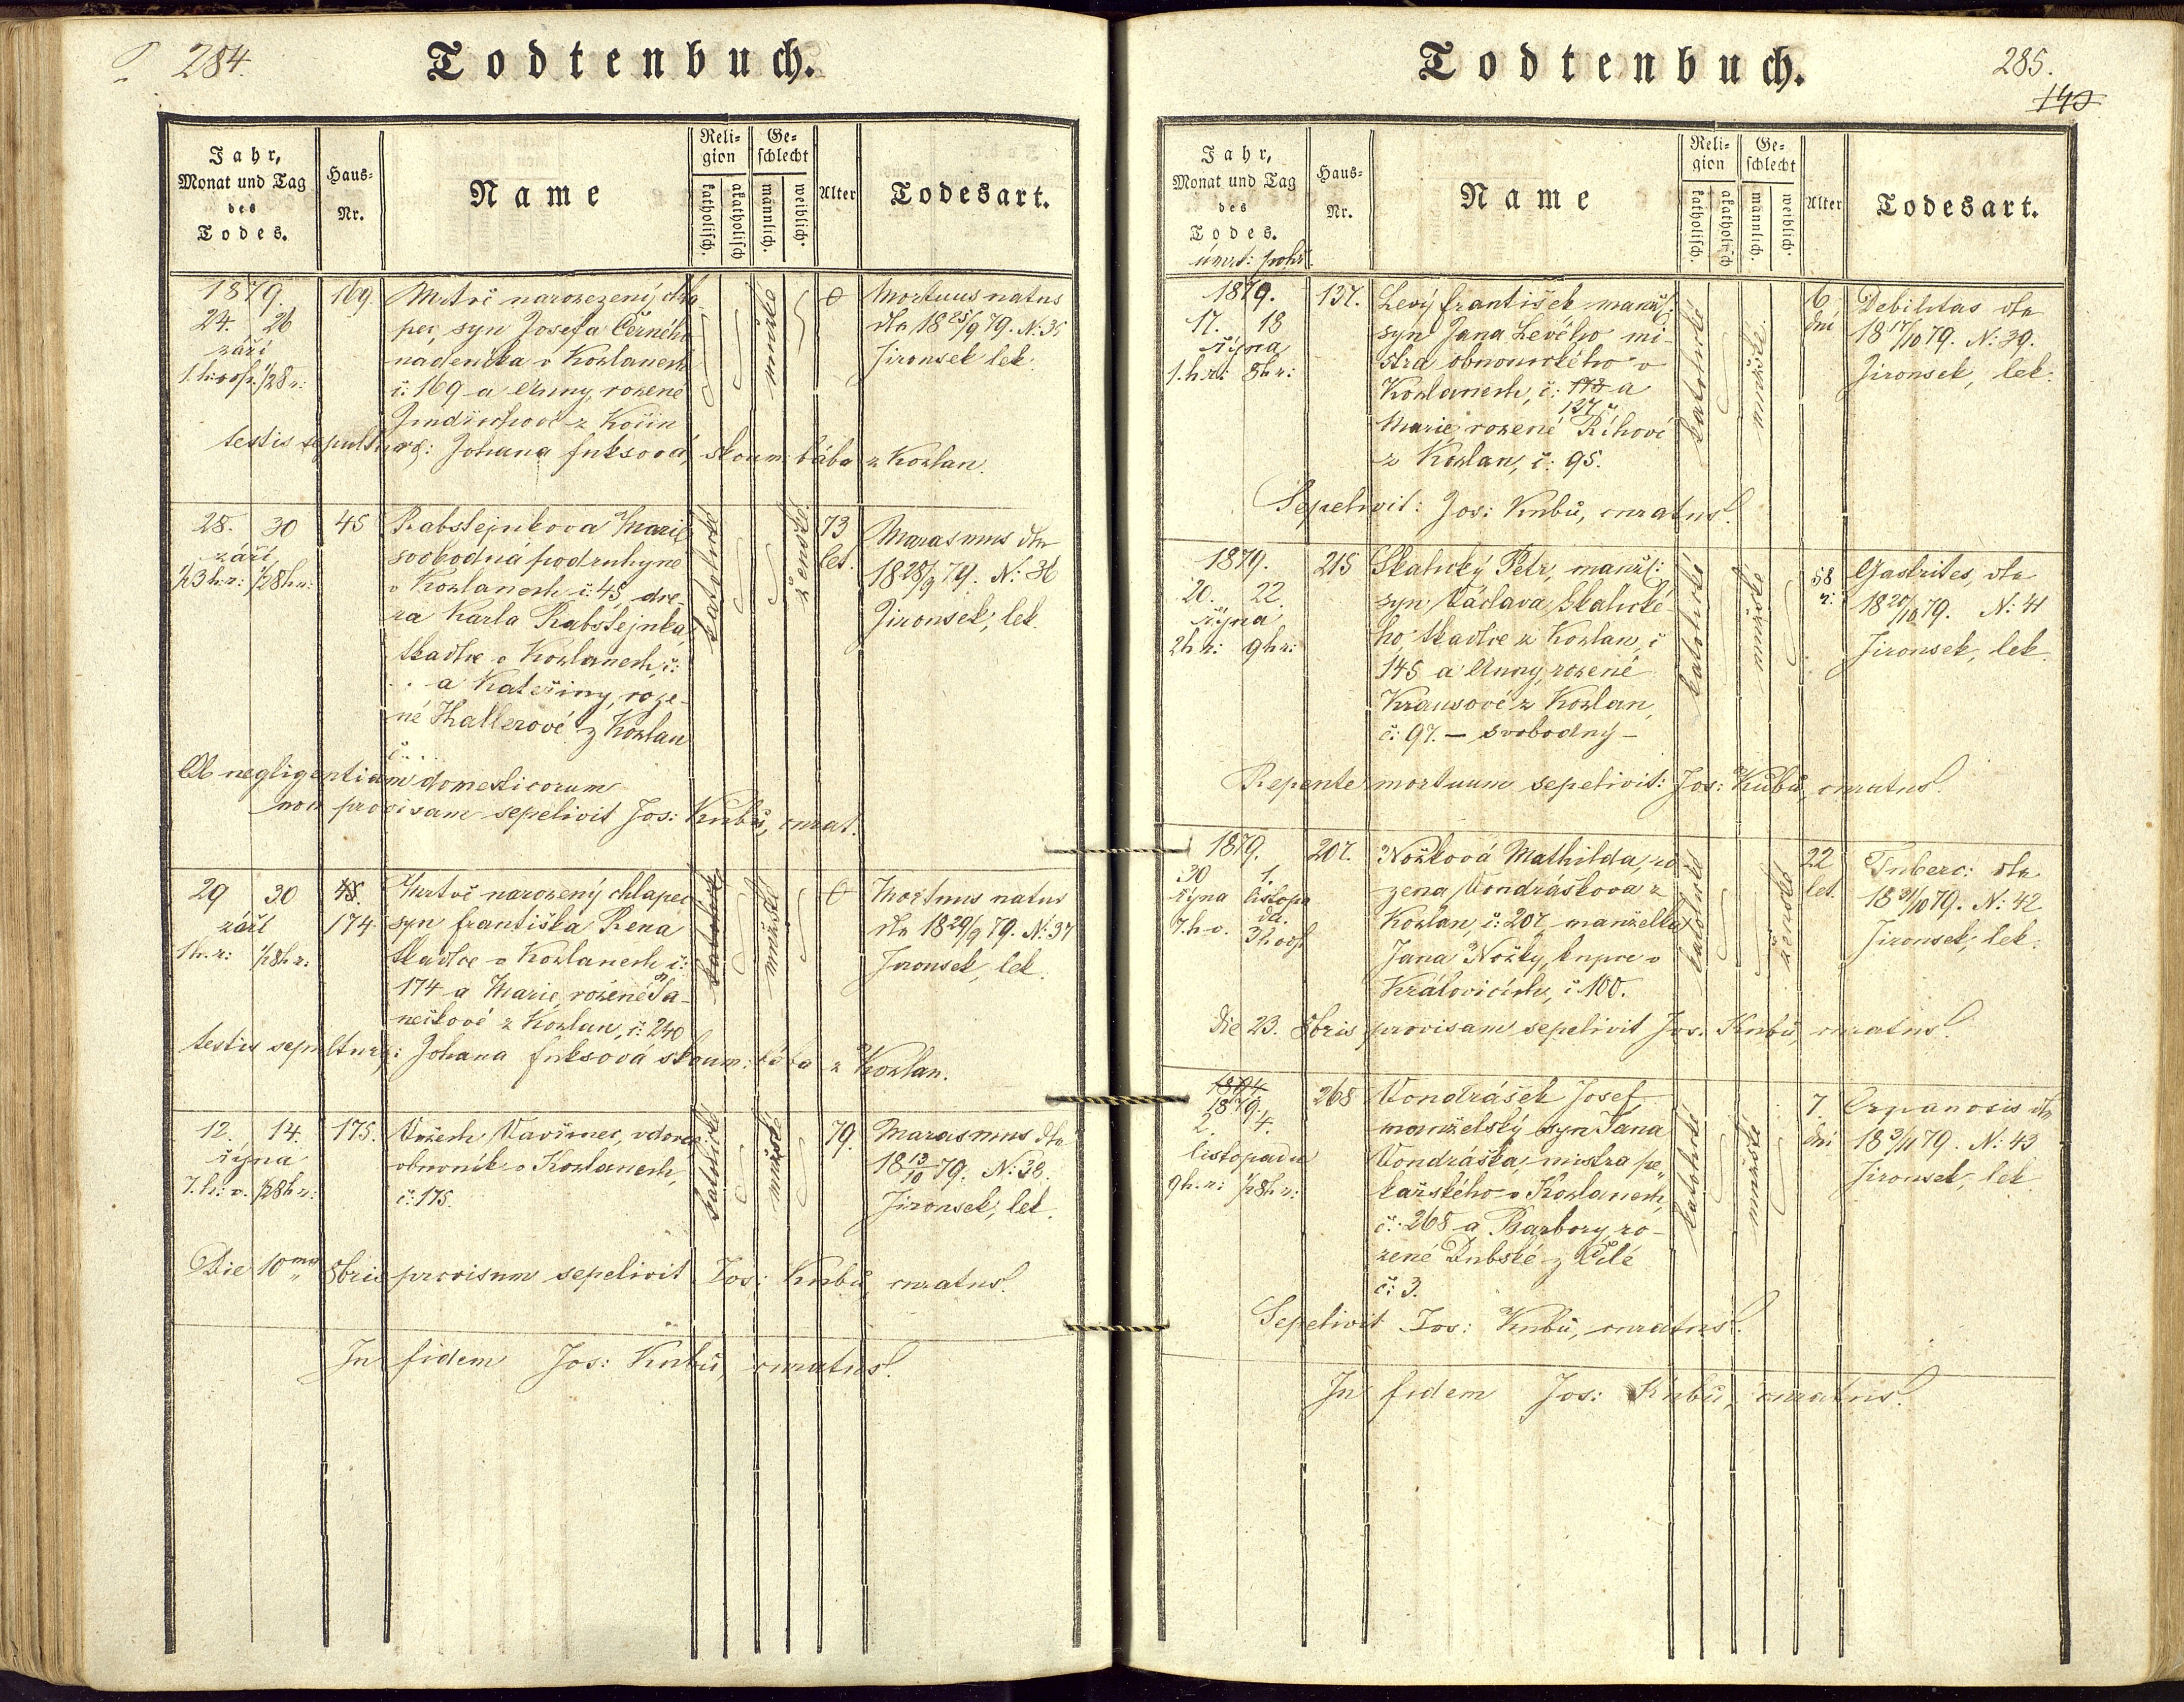 284.
Todtenbuch.
Jahr,
Monat und Tag
des
Todes.
Haus-
Nr.
Name
Reli-
gion
katholisch.
akatholisch
Ge-
schlecht
männlich.
weiblich.
Alter
Todesart.
1879.
24. 26
září
1. h: odp. 1/2 8 r:
169
Mrtvě narozený chla-
pec, syn Josefa Černého
nadeníka v Kozlanech
č: 169 a Anny, rozené
Jindřichové z Kožín
mužské
0
Mortuus natus
dto 18 25/9 79. N: 35
Jirousek lek.
testis sepulturæ: Johana Fuksová, zkoum: bába z Kozlan.
28. 30
září
1/2 3 h: r: 1/2 8 h r:
45
Rabštejnkova Marie
svobodná podruhyně
v Kozlanech č: 45 dce-
ra Karla Rabštejnka,
tkadlce v Kozlanech, č:
. . a Kateřiny, roze-
né Hallerové z Kozlan
č: . . .
katolické
ženské
73
let.
Marasmus dto
18 28/9 79. N: 36
Jirousek, lek.
Ob negligentiam domesticorum
non provisam sepelivit Jos: Kubů, curat.
29 30
září
1 h. r: 1/2 8 h r:
48.
174
Mrtvě narozený chlapec
syn Františka Rena
tkadlce v Kozlanech č:
174 a Marie, rozené Ša-
nečkové z Kozlan, č: 240
katolické
mužské
0
Mortuus natus
dto 18 29/9 79. N: 37
Jirousek, lek.
testis sepulturæ: Johana Fuksová zkoum: bába z Kozlan.
12. 14.
října
7. h: v. 1/2 8 h r:
175.
Vožech Vavřinec, vdovec
obuvník v Kozlanech,
č: 175.
katolické
mužské
79.
Marasmus dto
18 13/10 79. N: 38.
Jirousek, lek.
Die 10ma 8bris provisum sepelivit Jos: Kubů, curatus.
In fidem Jos: Kubů, curatus.
285.
140
Todtenbuch.
Jahr,
Monat und Tag
des
Todes.
úmrt: pohř.
Haus-
Nr.
Name
Reli-
gion
katholisch.
akatholisch
Ge-
schlecht
männlich.
weiblich.
Alter
Todesart.
1879.
17. 18
října
1. h. r: 8 h r:
137.
Levý František manžl:
syn Jana Levého mi-
stra obuvnického v
Kozlanech, č: a
137
Marie, rozené Říhové
z Kozlan, č: 95.
katolické
mužské
6
dní
Debilitas dto
18 17/10 79. N: 39.
Jirousek, lek.
Sepelivit: Jos: Kubů, curatus.
1879.
20. 22.
října
2 h r: 9 h r:
215
Skalický Petr, manžl:
syn Václava Skalické-
ho, tkadlce z Kozlan, č
145 a Anny, rozené
Krausové z Kozlan,
č: 97. — svobodný —
katolické
mužské
58
r:
Gastrites, dto
18 20/10 79. N: 41
Jirousek, lek.
Repente mortuum sepelivit: Jos: Kubů, curatus.
1879.
30 1.
října listopa
da.
7. h v. 3 h odp
207.
Nožková Mathilda, ro-
zena Vondráškova z
Kozlan, č: 207 manželka
Jana Nožky, kupce v
Kralovicích, č 100.
katolické
ženské
22
let.
Tuberc: dto
18 31/10 79. N: 42
Jirousek, lek.
die 23. 8bris provisam sepelivit Jos: Kubů, curatus.
1874
1879.
2. 4.
listopadu
9 h. r: 1/2 8 h r:
268
Vondrášek Josef,
manželský syn Jana
Vondráška, mistra pe-
kařského v Kozlanech,
č: 268 a Barbory, ro-
zené Dubské z Bílé
č: 3.
katolické
mužské
7.
dní
Cyanosis dto
18 3/11 79. N: 43
Jirousek, lek
Sepelivit Jos: Kubů, curatus.
In fidem Jos: Kubů, curatus.